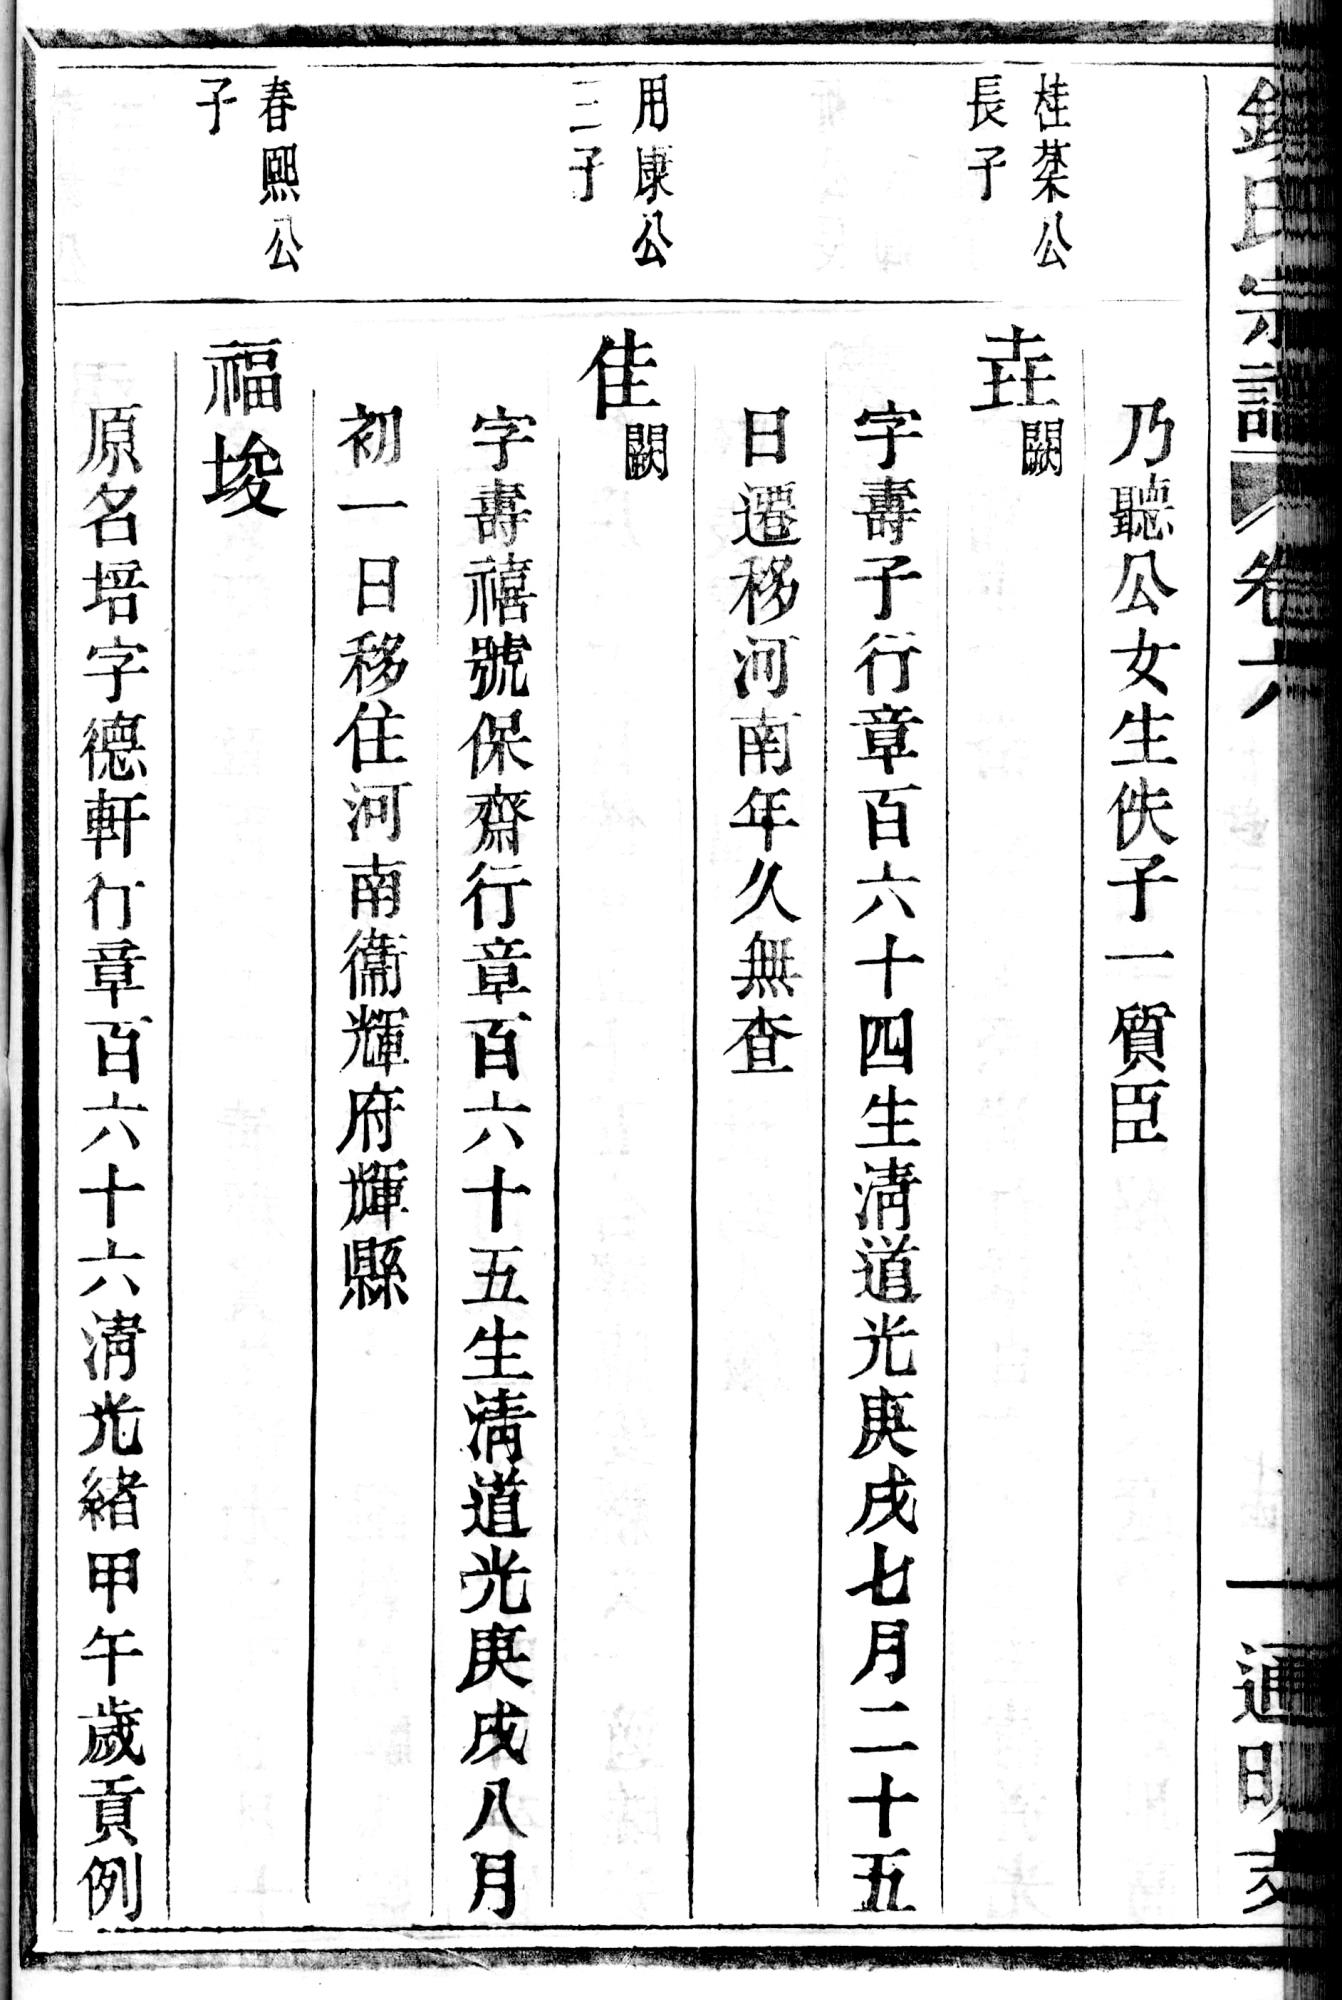 氏宗譜 卷六 一 通明支
乃聽公女生佚子一質臣
桂棻公
長子
垚闕
字壽子行章百六十四生清道光庚戌七月二十五
日遷移河南年久無查
用康公
三子
佳闕
字壽禧號保齋行章百六十五生清道光庚戌八月
初一日移住河南衞輝府輝縣
春熙公
子
福埈
原名培字德軒行章百六十六清光緒甲午歲貢例